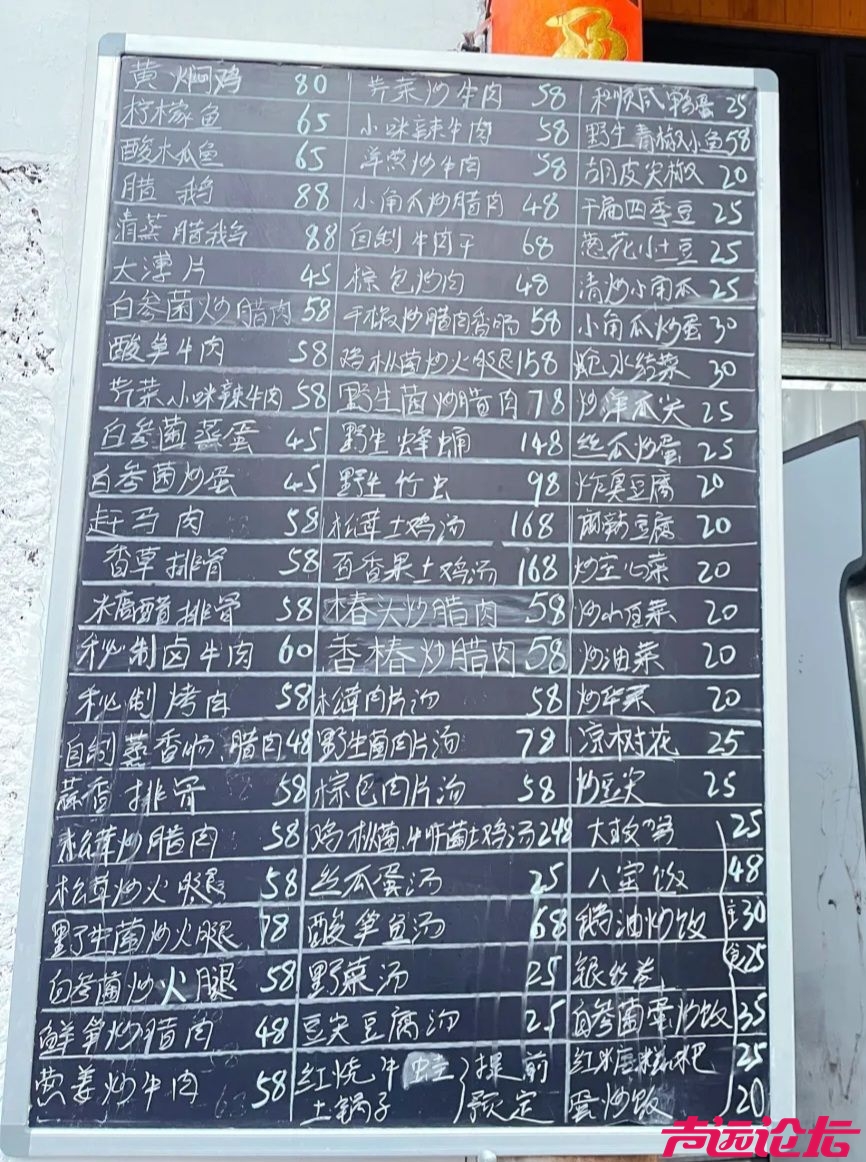 黄焖鸡 80
柠檬鱼 65
酸木瓜鱼 65
腊鹅 88
清蒸腊鹅 88
大薄片 45
白参菌炒腊肉 58
酸笋牛肉 58
芹菜小咪辣牛肉 58
白参菌蒸蛋 45
白参菌炒蛋 45
赶马肉 58
香草排骨 58
木瓜醋排骨 58
秘制卤牛肉 60
秘制烤肉 58
自制蒸香肠、腊肉 48
蒜香排骨 58
松茸炒腊肉 58
松茸炒火腿 58
野生菌炒火腿 78
白参菌炒火腿 58
鲜笋炒腊肉 48
葱姜炒牛肉 58
芹菜炒牛肉 58
小咪辣牛肉 58
洋葱炒牛肉 58
小角瓜炒腊肉 48
自制牛肉干 68
棕包炒肉 48
干椒炒腊肉香肠 58
鸡枞菌炒火腿 158
野生菌炒腊肉 78
野生蜂蛹 148
野生竹虫 98
松茸土鸡汤 168
百香果土鸡汤 168
椿头炒腊肉 58
香椿炒腊肉 58
松茸肉片汤 58
野生菌肉片汤 78
棕包肉片汤 58
鸡枞菌、牛肝菌土鸡汤 248
丝瓜蛋汤 25
酸笋鱼汤 68
野菜汤 25
豆尖豆腐汤 25
红烧牛
土锅子
提前
预定
和顺咸鸭蛋 25
野生青椒小鱼 58
胡皮尖椒 20
干扁四季豆 25
葱花小土豆 25
清炒小角瓜 25
小角瓜炒蛋 30
水结菜 30
炒洋瓜尖 25
丝瓜炒蛋 25
炸臭豆腐 20
麻辣豆腐 20
炒空心菜 20
炒小白菜 20
炒油菜 20
炒华菜 20
凉树花 25
炒豆尖 25
大救驾 25
八宝饭 48
鹅油炒饭 30
银丝卷 25
白参菌蛋炒饭 35
红米糍粑 25
蛋炒饭 20
主
食
声远论坛